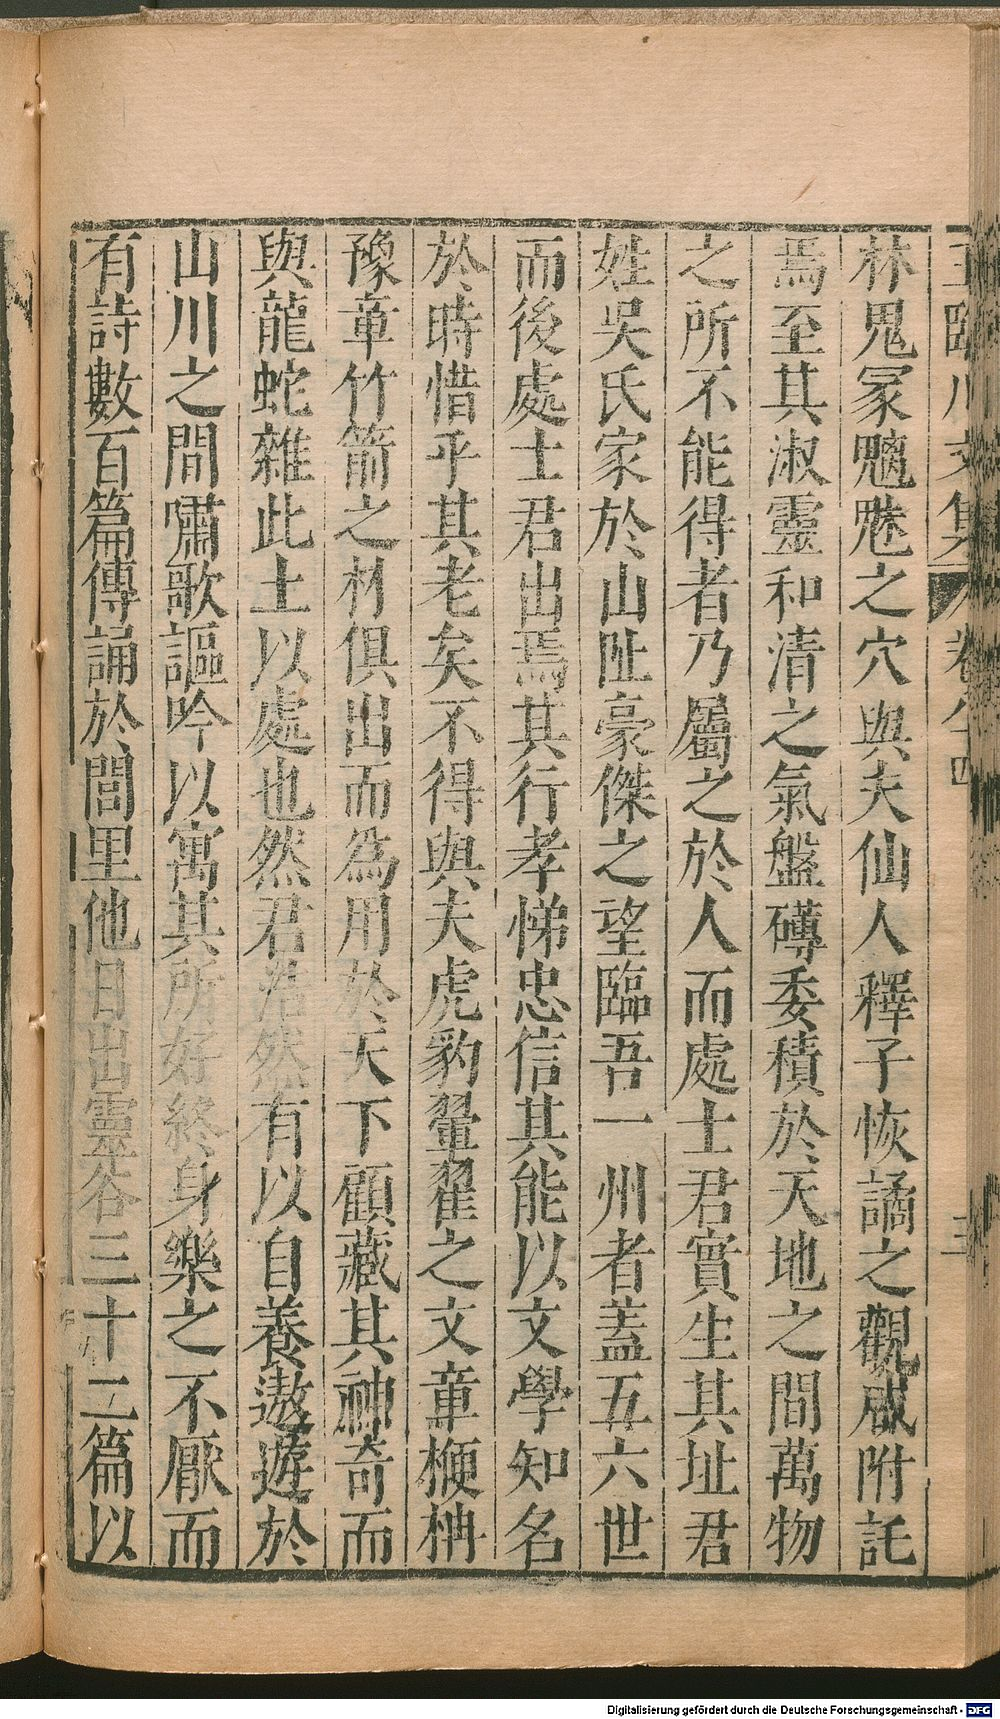 王臨川文集 卷八十四 三
林鬼冢魑魅之穴與夫仙人釋子恢譎之觀咸附託
焉至其淑靈和清之氣盤礴委積於天地之間萬物
之所不能得者乃屬之於人而處士君實生其址君
姓吳氏家於山阯豪傑之望臨吾一州者蓋五六世
而後處士君出焉其行孝悌忠信其能以文學知名
於時惜乎其老矣不得與夫虎豹翬翟之文章楩枏
豫章竹箭之材俱出而爲用於天下顧藏其神奇而
與龍蛇雜此土以處也然君浩然有以自養遨遊於
山川之間嘯歌謳吟以寓其所好終身樂之不厭而
有詩數百篇傳誦於閭里他日出靈谷三十二篇以
Digitalisierung gefördert durch die Deutsche Forschungsgemeinschaft - DFG